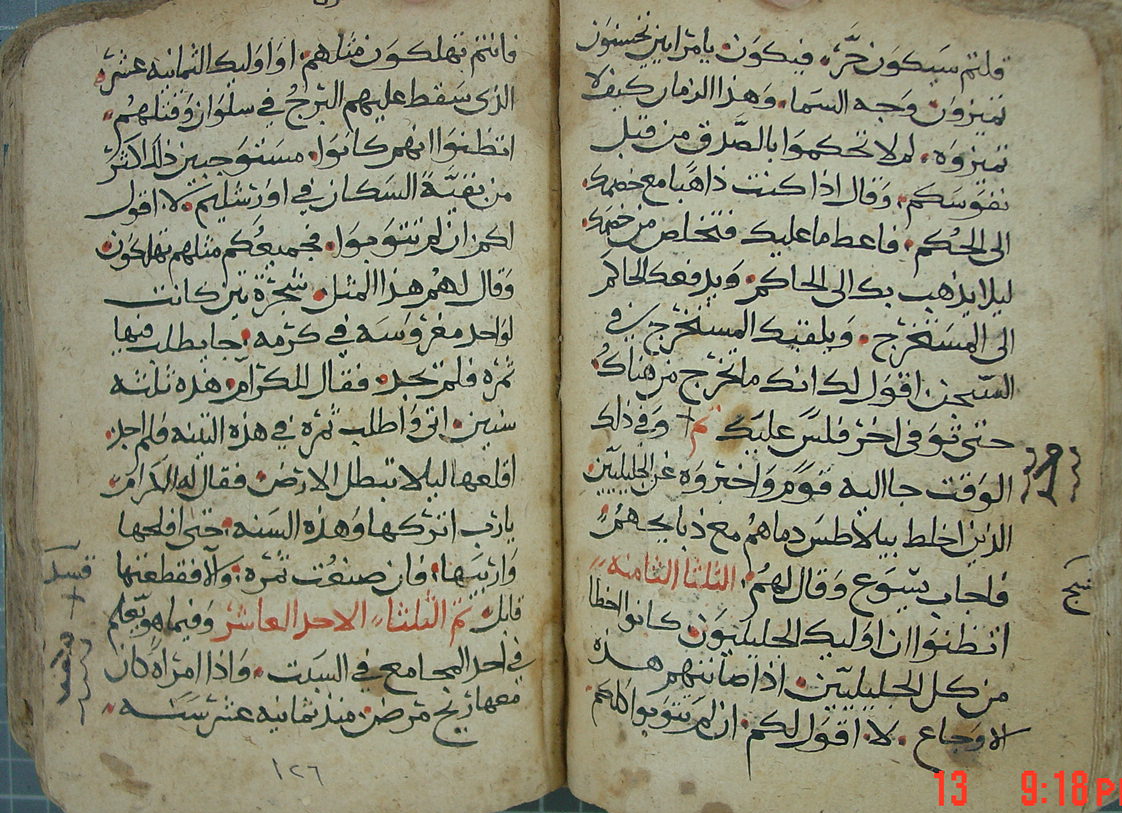 قلتم سيكون حَّر، فيكون، يامرايين تحسنون
تميزون وجه السما، وهذا الزمان كيف لا
تميزوه، لم لا تحكموا بالصَّدق من قبل
نفوسكم، وقال اذا كنت ذاهبا مع خصمك
الى الحُكم، فاعط ما عليك فتتخلص من خصمك
ليلا يذهب بك الى الحاكم، ويدفعك الحاكم
الى المستخرج، ويلقيك المستخرج في
السّجن، اقول لك انك ما تخرج من هناك
حتى توفى اخر فلس عليك تم وفي ذلك
الوقت جا اليه قوم واخبروه عن الجليليّين
الذين اخلط بيلاطس دماهم مع ذبايحهُم
فاجاب يسوع وقال لهُم، الثلثا الثامنه
اتظنوا ان اوليك الجليليون كانوا اخطا
من كل الجليليّين، اذا صابتهم هذه
الاوجاع، لا، اقول لكم، ان لم تتوبوا كلكم
فانتم تهلكون مثلهم، او اوليك الثمانيه عشر
الذى سقط عليهم البرجُ في سلوان وقتلهُم
اتظنوا انهم كانوا، مستوجبين ذلك اكثر
من بقيّة السكان في اورشليم، لا، اقول
لكم، ان لم تتوبوا، فجميعُكم مثلهم تهلكون
وقال لهُم هذا المثل، شجرة تين كانت
لواحد مغروسه في كرمه، جا يطلب فيها
ثمره فلم يجد، فقال للكرّام، هذه ثلثه
سنين، اتى واطلب ثمره في هذه التينه فلم اجد
اقلعها ليلا تبطل الارض، فقال له الكرام
يارب اتركها وهذه السنه، حتى افلحها
وازبلها، فان صنعُت ثمره، والّا فقطعتها
قابل تم الثلثا، الاحد العاشر وفيما هو يعَلم
في احد المجامع في السبت، واذا امراه كان
معها ريح مرض، منذ ثمانيه عشر سنه
١٢٦
13 9:18